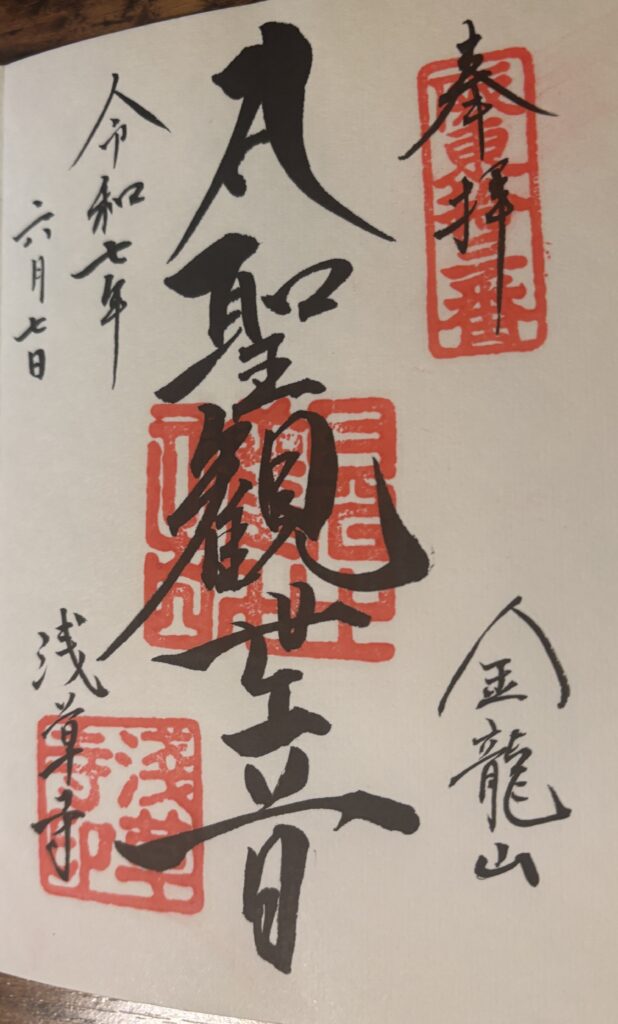 奉拝
坂東拾三番
金龍山
聖観世音
令和七年
六月七日
浅草寺
淺草寺印